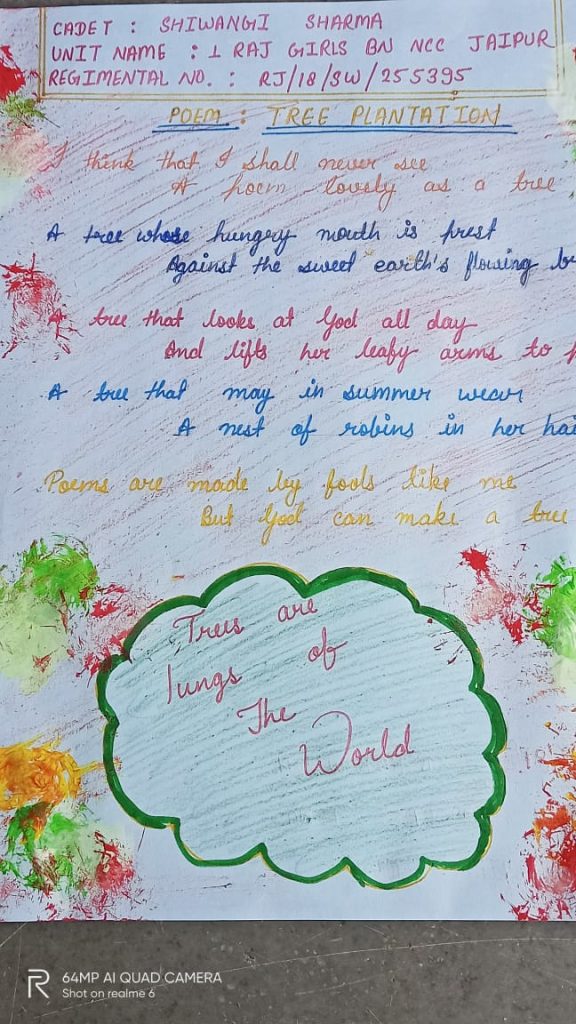 CADET : SHIWANGI SHARMA
UNIT NAME : 1 RAJ GIRLS BN NCC JAIPUR
REGIMENTAL NO. : RJ/18/SW/255395
POEM : TREE PLANTATION
I think that I shall never see
A poem lovely as a tree
A tree whose hungry mouth is prest
Against the sweet earth's flowing
A tree that looks at God all day
And lifts her leafy arms to
A tree that may in summer wear
A nest of robins in her hai
Poems are made by fools like me
But God can make a tree
Trees are
lungs of
The
World
R 64MP AI QUAD CAMERA
Shot on realme 6